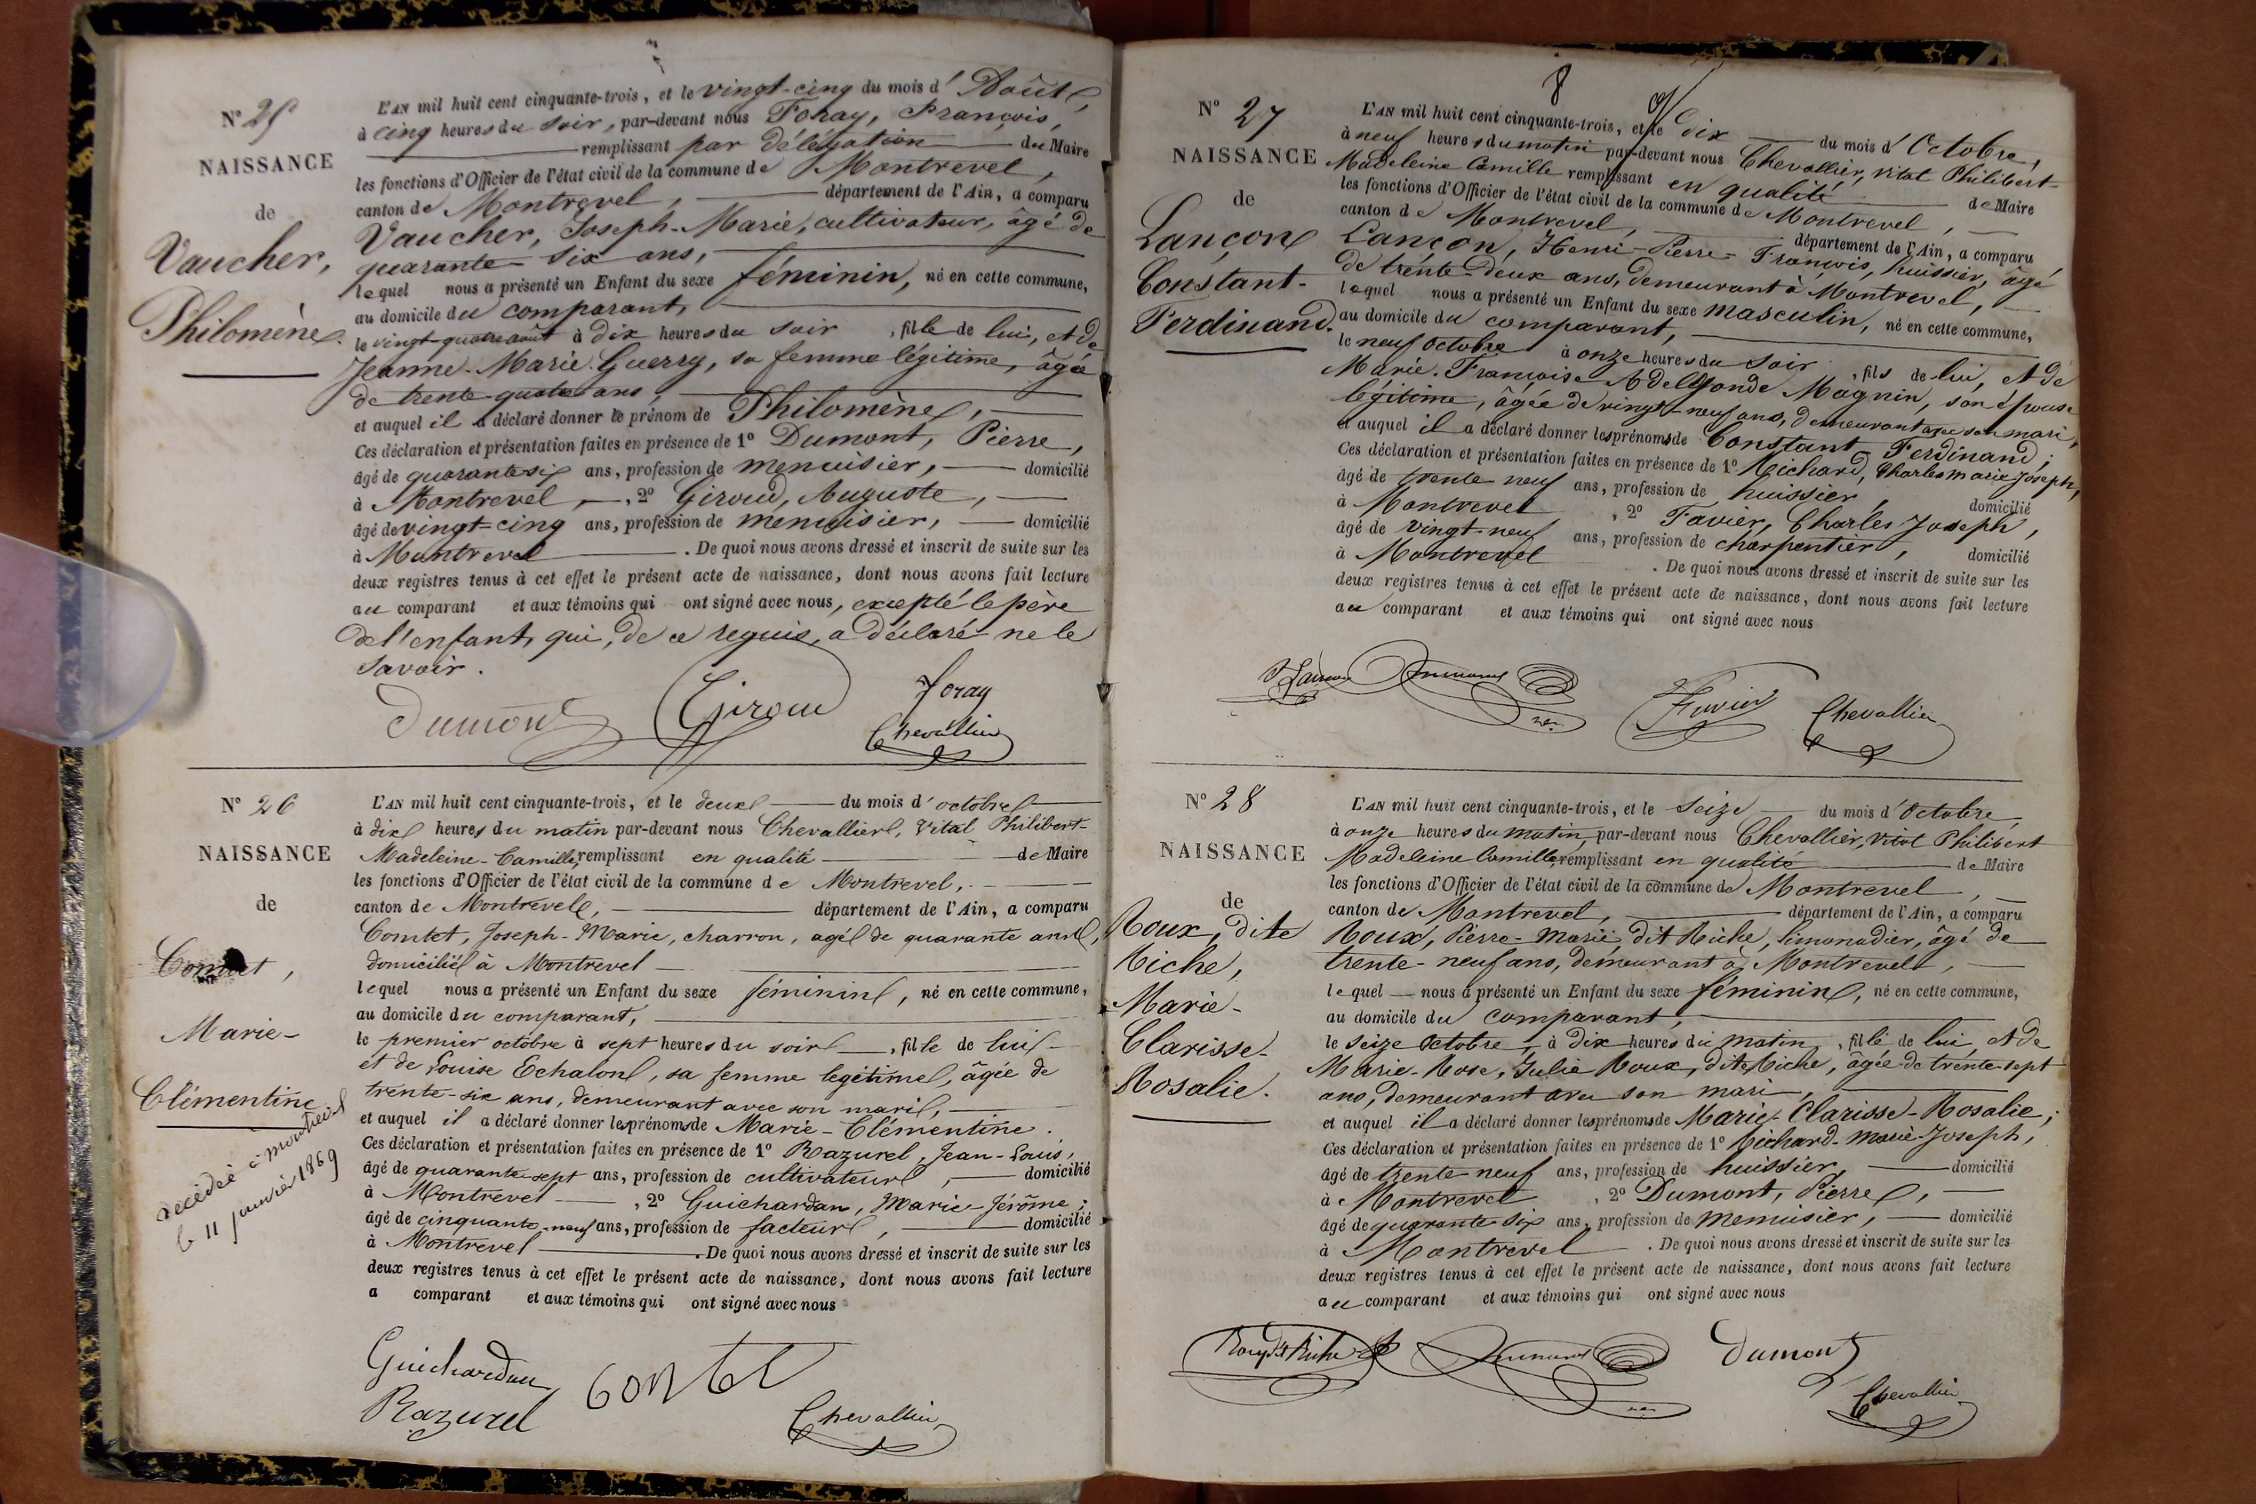 N° 25
NAISSANCE
de
Vaucher,
Philomène.
L'AN mil huit cent cinquante-trois, et le vingt-cinq du mois d' Août,
à cinq heures du soir, par-devant nous Foray, François,
remplissant par délégation du Maire
les fonctions d'Officier de l'état civil de la commune de Montrevel,
canton de Montrevel, département de l'Ain, a comparu
Vaucher, Joseph-Marie, cultivateur, âgé de
quarante-six ans,
lequel nous a présenté un Enfant du sexe féminin, né en cette commune,
au domicile du comparant,
le vingt-quatre août à dix heures du soir, fille de lui, et de
Jeanne-Marie Guerry, sa femme légitime, âgée
de trente-quatre ans,
et auquel il a déclaré donner le prénom de Philomène,
Ces déclaration et présentation faites en présence de 1° Dumont, Pierre,
âgé de quarante six ans, profession de menuisier, domicilié
à Montrevel, 2° Giroud, Auguste,
âgé de vingt-cinq ans, profession de menuisier, domicilié
à Montrevel. De quoi nous avons dressé et inscrit de suite sur les
deux registres tenus à cet effet le présent acte de naissance, dont nous avons fait lecture
au comparant et aux témoins qui ont signé avec nous, excepté le père
de l'enfant, qui, de ce requis, a déclaré ne le
savoir.
Dumont Giroud Foray
Chevallier
N° 26
NAISSANCE
de
Comtet,
Marie-
Clémentine
décédée à montrevel
le 11 janvier 1869
L'AN mil huit cent cinquante-trois, et le deux du mois d'octobre
à dix heures du matin par-devant nous Chevallier, Vital Philibert-
Madeleine-Camille, remplissant en qualité de Maire
les fonctions d'Officier de l'état civil de la commune de Montrevel,
canton de Montrevel, département de l'Ain, a comparu
Comtet, Joseph-Marie, charron, agé de quarante ans,
domicilié à Montrevel
lequel nous a présenté un Enfant du sexe féminin, né en cette commune,
au domicile du comparant,
le premier octobre à sept heures du soir, fille de lui
et de Louise Echalon, sa femme legitime, âgée de
trente-six ans, demeurant avec son mari,
et auquel il a déclaré donner les prénoms de Marie-Clémentine.
Ces déclaration et présentation faites en présence de 1° Razurel, Jean-Louis,
âgé de quarante sept ans, profession de cultivateur, domicilié
à Montrevel, 2° Guichardan, Marie-Jérôme;
âgé de cinquante-neuf ans, profession de facteur, domicilié
à Montrevel. De quoi nous avons dressé et inscrit de suite sur les
deux registres tenus à cet effet le présent acte de naissance, dont nous avons fait lecture
a comparant et aux témoins qui ont signé avec nous
Guichardan contet
Razurel Chevallier
8
N° 27
NAISSANCE
de
Lançon
Constant-
Ferdinand.
L'AN mil huit cent cinquante-trois, et le dix du mois d'Octobre,
à neuf heures du matin par-devant nous Chevallier, Vital Philibert-
Madeleine Camille remplissant en qualité de Maire
les fonctions d'Officier de l'état civil de la commune de Montrevel,
canton de Montrevel, département de l'Ain, a comparu
Lançon, Henri-Pierre-François, huissier, âgé
de trente-deux ans, demeurant à Montrevel,
lequel nous a présenté un Enfant du sexe masculin, né en cette commune,
au domicile du comparant,
le neuf octobre à onze heures du soir, fils de lui, et de
Marie-Françoise Magnin, son épouse
légitime, âgée de vingt-neuf ans, demeurant avec son mari,
et auquel il a déclaré donner les prénoms de Constant-Ferdinand;
Ces déclaration et présentation faites en présence de 1° Richard, Charles Marie Joseph,
âgé de trente neuf ans, profession de huissier, domicilié
à Montrevel, 2° Favier, Charles Joseph,
âgé de vingt-neuf ans, profession de charpentier, domicilié
à Montrevel. De quoi nous avons dressé et inscrit de suite sur les
deux registres tenus à cet effet le présent acte de naissance, dont nous avons fait lecture
au comparant et aux témoins qui ont signé avec nous
Favier Chevallier
N° 28
NAISSANCE
de
Roux, dite
Riche,
Marie-
Clarisse-
Rosalie.
L'AN mil huit cent cinquante-trois, et le seize du mois d'Octobre,
à onze heures du matin, par-devant nous Chevallier, Vital Philibert
Madeleine Camille, remplissant en qualité de Maire
les fonctions d'Officier de l'état civil de la commune de Montrevel,
canton de Montrevel, département de l'Ain, a comparu
Roux, Pierre-Marie, dit Riche, limonadier, âgé de
trente-neuf ans, demeurant à Montrevel,
lequel nous a présenté un Enfant du sexe féminin, né en cette commune,
au domicile du comparant,
le seize Octobre, à dix heures du matin, fille de lui, et de
Marie-Rose, Julie Roux, dite Riche, âgée de trente-sept
ans, demeurant avec son mari,
et auquel il a déclaré donner les prénoms de Marie-Clarisse-Rosalie;
Ces déclaration et présentation faites en présence de 1° Richard-Marie-Joseph,
âgé de trente neuf ans, profession de huissier, domicilié
à Montrevel, 2° Dumont, Pierre,
âgé de quarante-six ans, profession de menuisier, domicilié
à Montrevel. De quoi nous avons dressé et inscrit de suite sur les
deux registres tenus à cet effet le présent acte de naissance, dont nous avons fait lecture
au comparant et aux témoins qui ont signé avec nous
Roux dit Riche Dumont
Chevallier